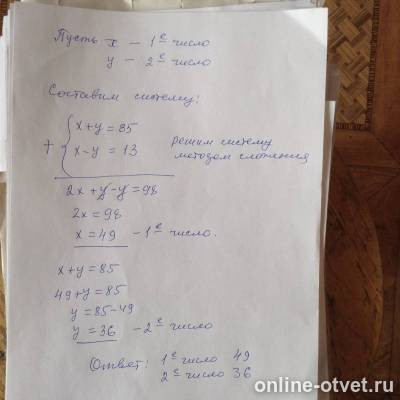 Пусть x – 1е число
y – 2е число
Составим систему:
x+y=85
+
x-y=13
решим систему
методом сложения
2x+y-y=98
2x=98
x=49 – 1е число.
x+y=85
49+y=85
y=85-49
y=36 – 2е число
Ответ: 1е число 49
2е число 36
online-otvet.ru